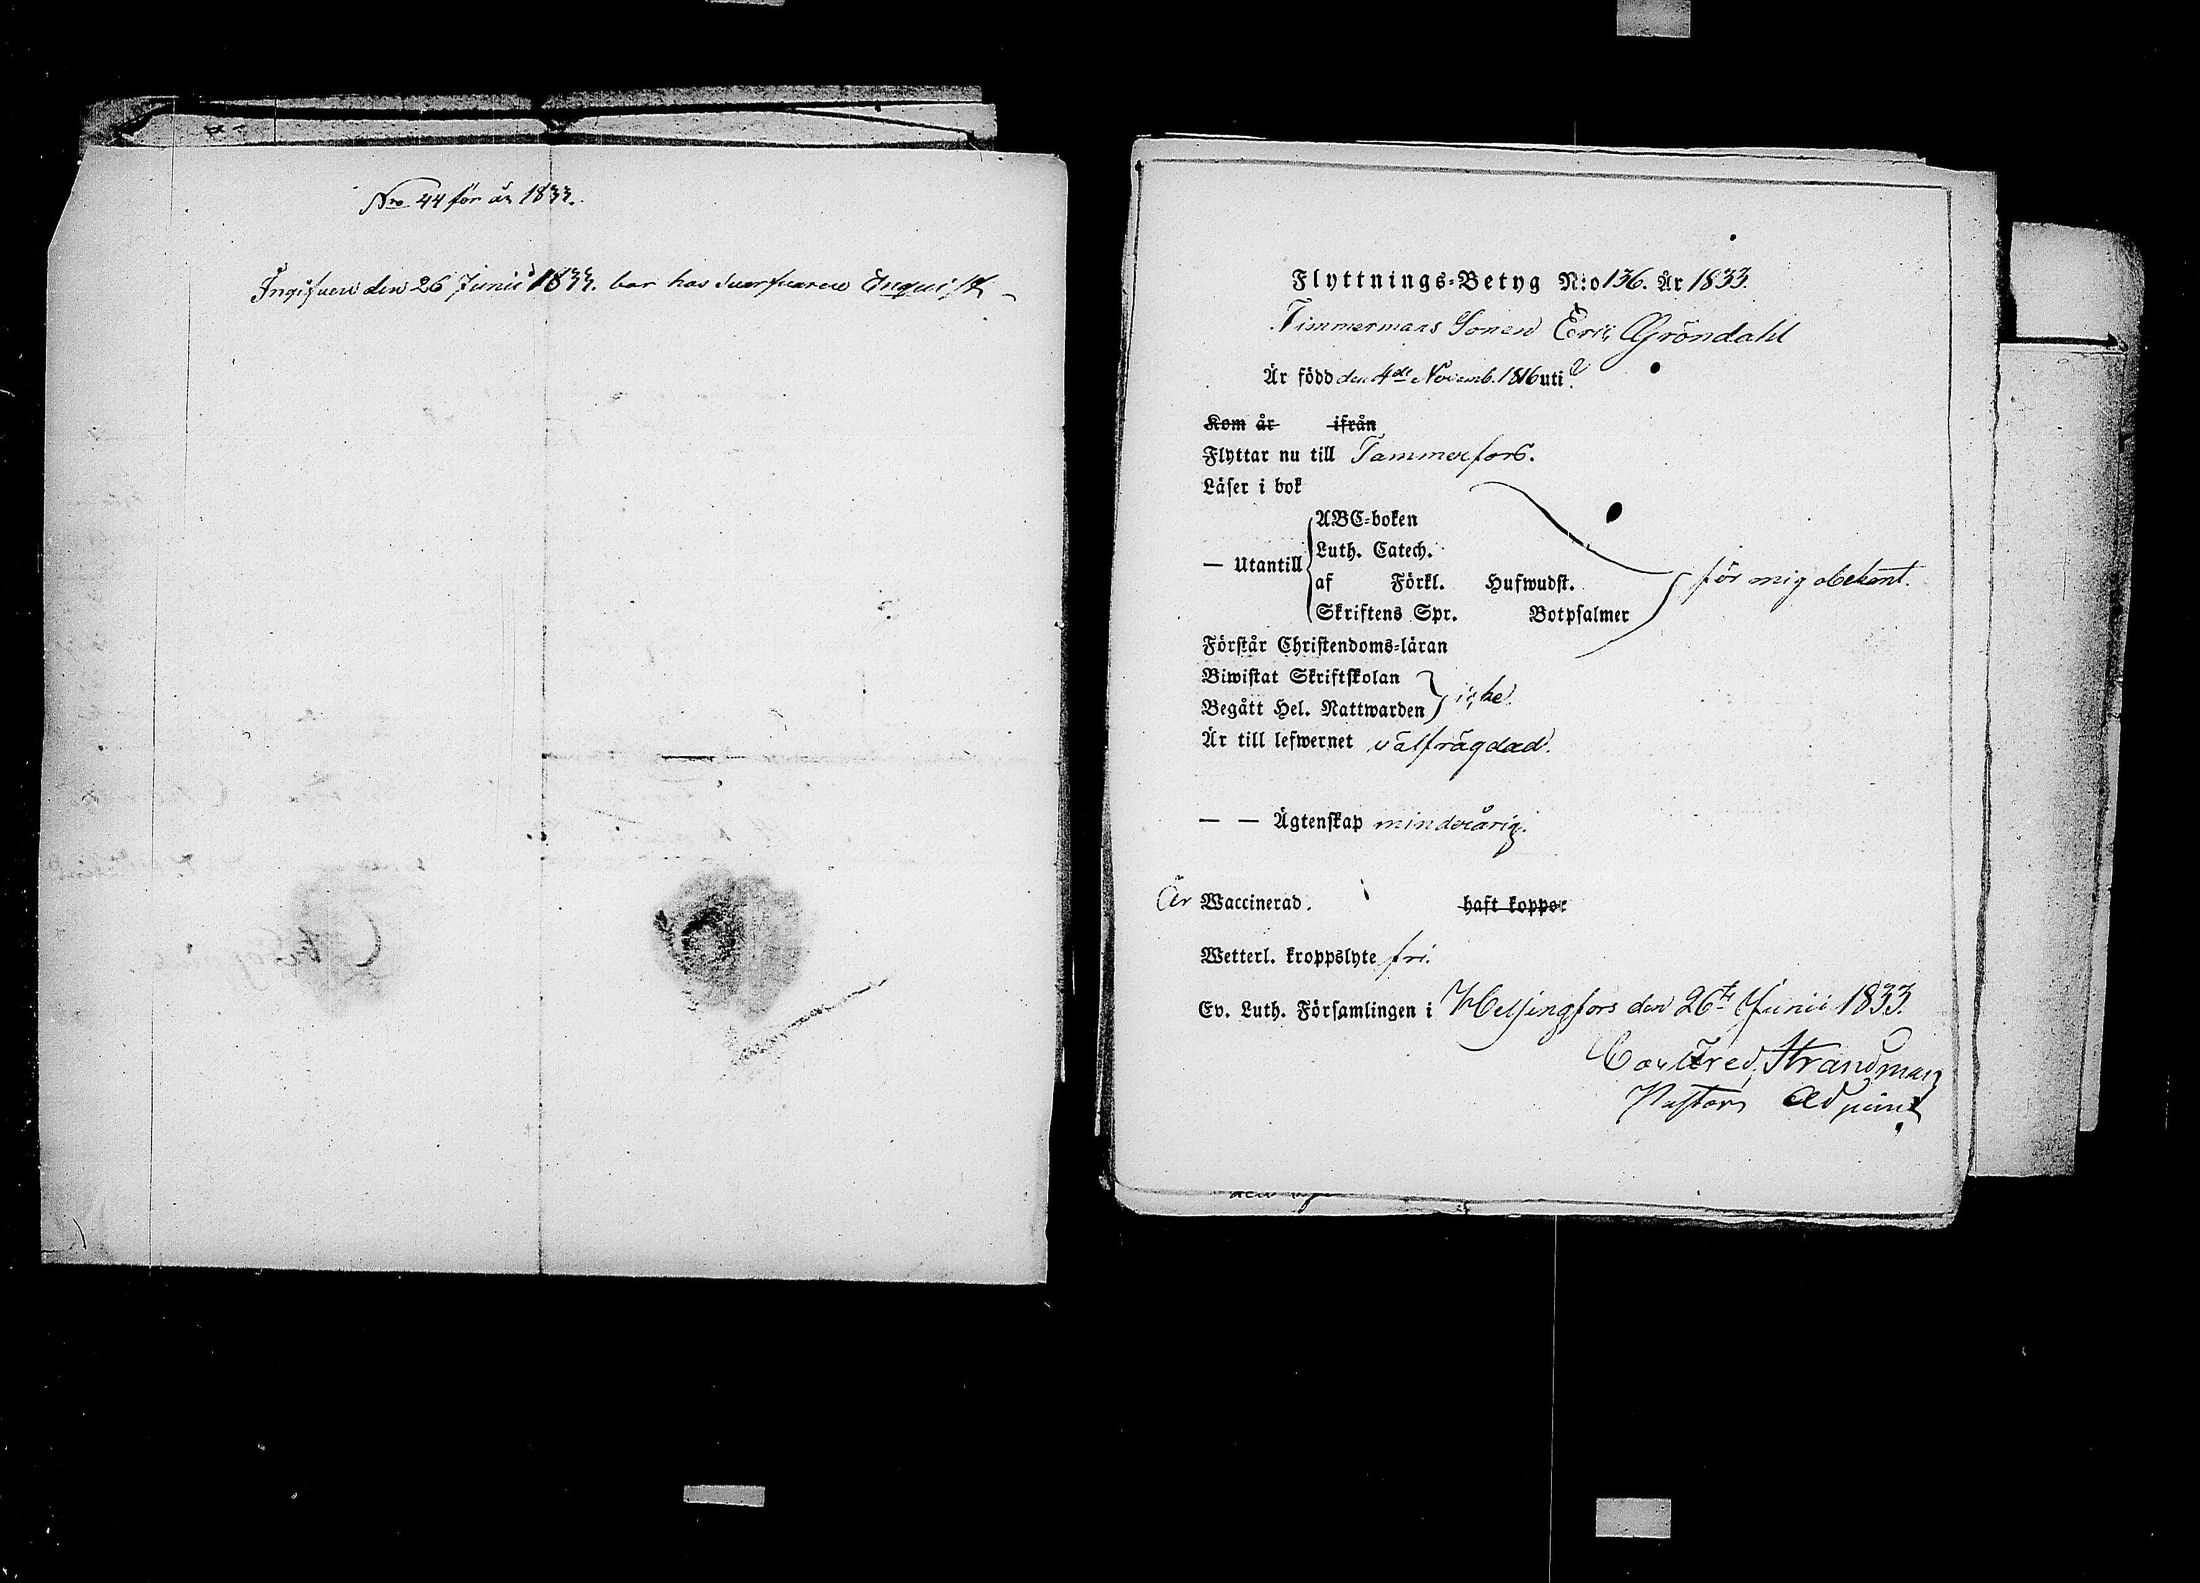 Nro 44 för år 1833.
Ingifven den 26 Junii 1833. bor hos Svarfvaren Enqvist
Flyttnings-Betyg N:o 136. År 1833.
Timmermans Sonen Eric Gröndahl
Är född den 4de Novemb. 1816 uti ?
Kom år ifrån
Flyttar nu till Tammerfors.
Läser i bok
— Utantill
ABC-boken
Luth. Catech.
af Förkl. Hufwudst.
Skriftens Spr. Botpsalmer
för mig obekant.
Förstår Christendoms-läran
Biwistat Skriftskolan
Begått Hel. Nattwarden
icke.
Är till lefwernet välfrägdad.
— — Ägtenskap minderårig.
Är Waccinerad. haft koppor
Wetterl. kroppslyte fri.
Ev. Luth. Församlingen i Helsingfors den 26te Junii 1833.
Carl Fred. Strandman
Pastors Adjunct